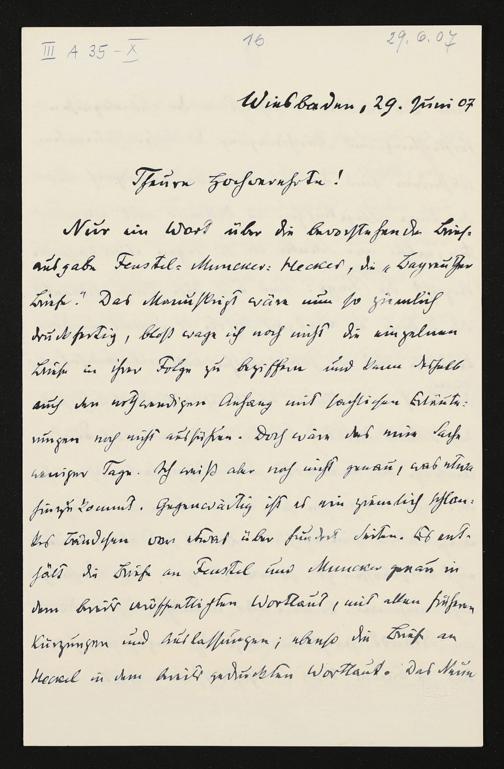 III A 35-X
16
29.6.07
Wiesbaden, 29. Juni 07
Theure Hochverehrte!
Nur ein Wort über die bevorstehende Brief-
ausgabe Feustel-Muncker-Heckel, die „Bayreuther
Briefe." Das Manuskript wäre nun so ziemlich
druckfertig, bloß wage ich noch nicht die einzelnen
Briefe in ihrer Folge zu beziffern und kann deshalb
auch den nothwendigen Anhang mit sachlichen Erläute-
rungen noch nicht ausführen. Doch wäre das eine Sache
weniger Tage. Ich weiß aber noch nicht genau, was etwa
hinzu kommt. Gegenwärtig ist es ein ziemlich schlan-
kes Bändchen von etwas über hundert Seiten. Es ent-
hält die Briefe an Feustel und Muncker genau in
dem bereits veröffentlichten Wortlaut, mit allen früheren
Kürzungen und Auslassungen; ebenso die Briefe an
Heckel in dem bereits gedruckten Wortlaut. Das Neue